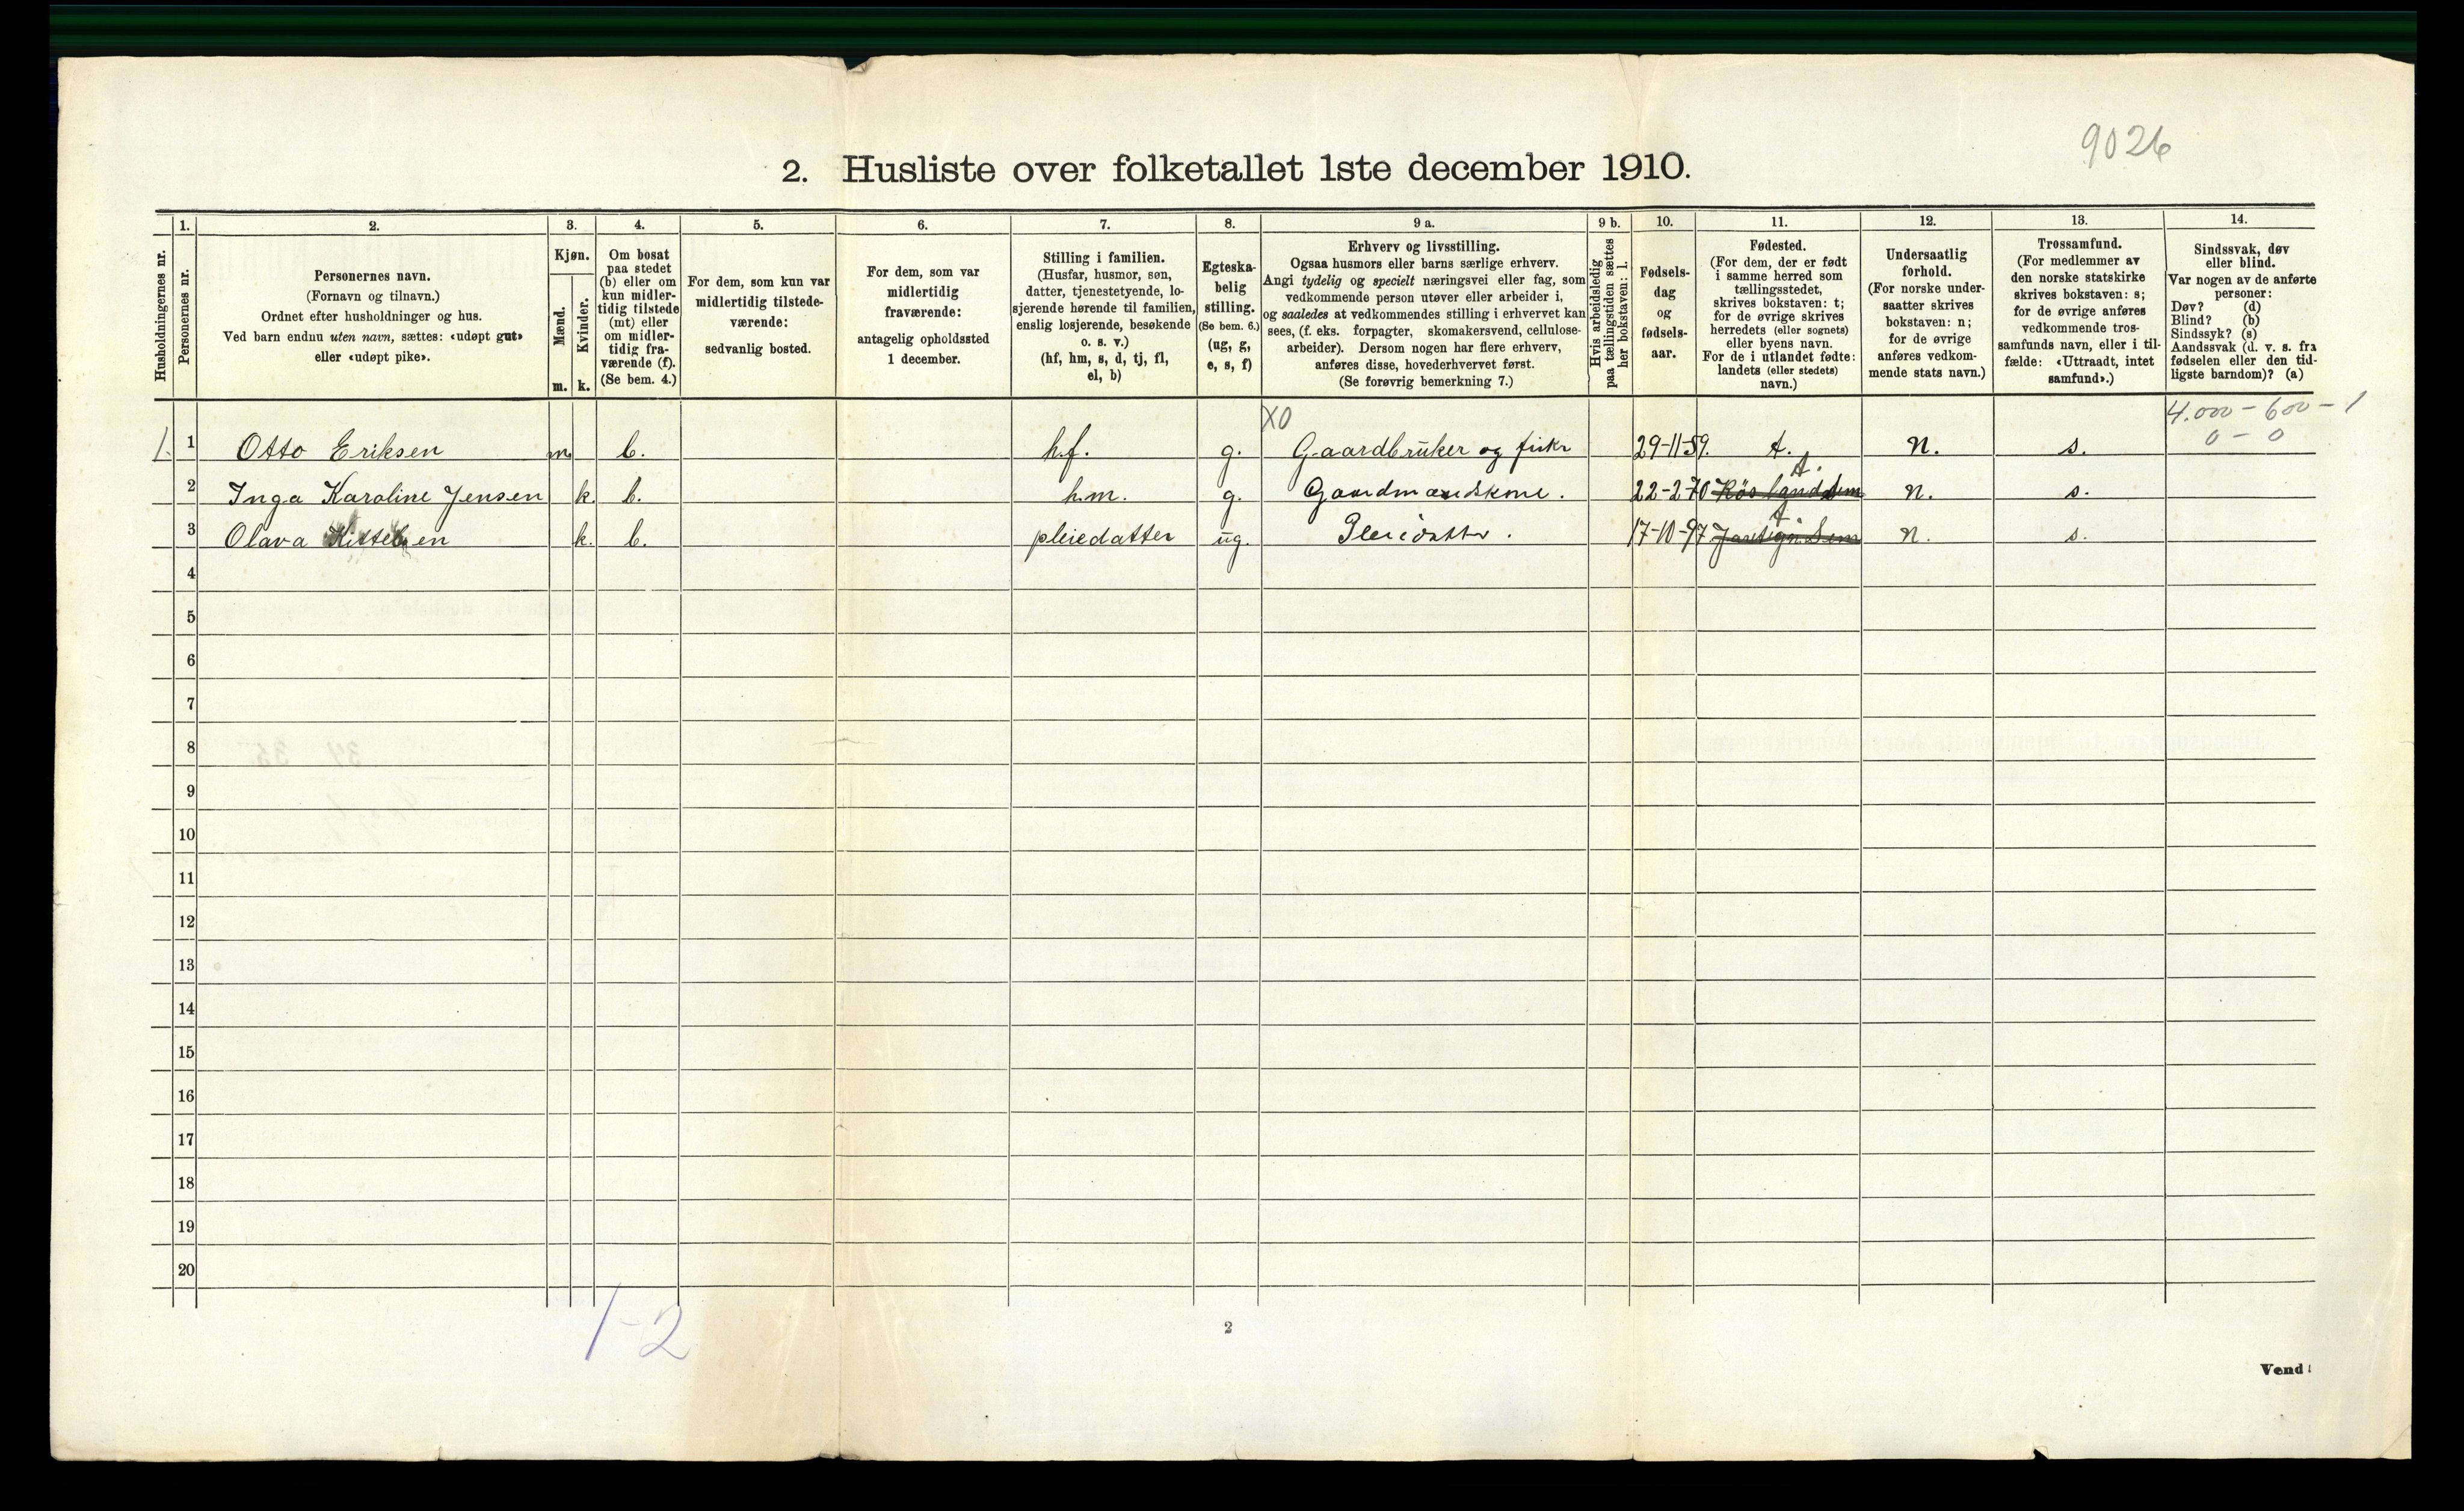 9026
2. Husliste over folketallet 1ste december 1910.
Husholdningernes nr.
1.
Personernes nr.
2.
Personernes navn.
(Fornavn og tilnavn.)
Ordnet efter husholdninger og hus.
Ved barn endnu uten navn, sættes: «udøpt gut»
eller «udøpt pike».
3.
Kjøn.
Mænd.
m.
Kvinder.
k.
4.
Om bosat
paa stedet
(b) eller om
kun midler-
tidig tilstede
(mt) eller
om midler-
tidig fra-
værende (f).
(Se bem. 4.)
5.
For dem, som kun var
midlertidig tilstede-
værende:
sedvanlig bosted.
6.
For dem, som var
midlertidig
fraværende:
antagelig opholdssted
1 december.
7.
Stilling i familien.
(Husfar, husmor, søn,
datter, tjenestetyende, lo-
sjerende hørende til familien,
enslig losjerende, besøkende
o. s. v.)
(hf, hm, s, d, tj, fl,
el, b)
8.
Egteska-
belig
stilling.
(Se bem. 6.)
(ug, g,
e, s, f)
9 a.
Erhverv og livsstilling.
Ogsaa husmors eller barns særlige erhverv.
Angi tydelig og specielt næringsvei eller fag, som
vedkommende person utøver eller arbeider i,
og saaledes at vedkommendes stilling i erhvervet kan
sees, (f. eks. forpagter, skomakersvend, cellulose-
arbeider). Dersom nogen har flere erhverv,
anføres disse, hovederhvervet først.
(Se forøvrig bemerkning 7.)
9 b.
Hvis arbeidsledig
paa tællingstiden sættes
her bokstaven: l.
10.
Fødsels-
dag
og
fødsels-
aar.
11.
Fødested.
(For dem, der er født
i samme herred som
tællingsstedet,
skrives bokstaven: t;
for de øvrige skrives
herredets (eller sognets)
eller byens navn.
For de i utlandet fødte:
landets (eller stedets)
navn.)
12.
Undersaatlig
forhold.
(For norske under-
saatter skrives
bokstaven: n;
for de øvrige
anføres vedkom-
mende stats navn.)
13.
Trossamfund.
(For medlemmer av
den norske statskirke
skrives bokstaven: s;
for de øvrige anføres
vedkommende tros-
samfunds navn, eller i til-
fælde: «Uttraadt, intet
samfund».)
14.
Sindssvak, døv
eller blind.
Var nogen av de anførte
personer:
Døv? (d)
Blind? (b)
Sindssyk? (s)
Aandssvak (d. v. s. fra
fødselen eller den tid-
ligste barndom)? (a)
X0
4.000 - 600 - 1
0 - 0
1. 1 Otto Eriksen m b. h.f. g. Gaardbruker og fisker 29-11-59. t. n. s.
t.
2 Inga Karoline Jensen k. b. h.m. g. Gaardmandskone. 22-2-70 n. s.
t
3 Olava Kittelsen k. b. pleiedatter ug. Pleiedatter. 17-10-97 n. s.
4
5
6
7
8
9
10
11
12
13
14
15
16
17
18
19
20
1-2
2
Vend!